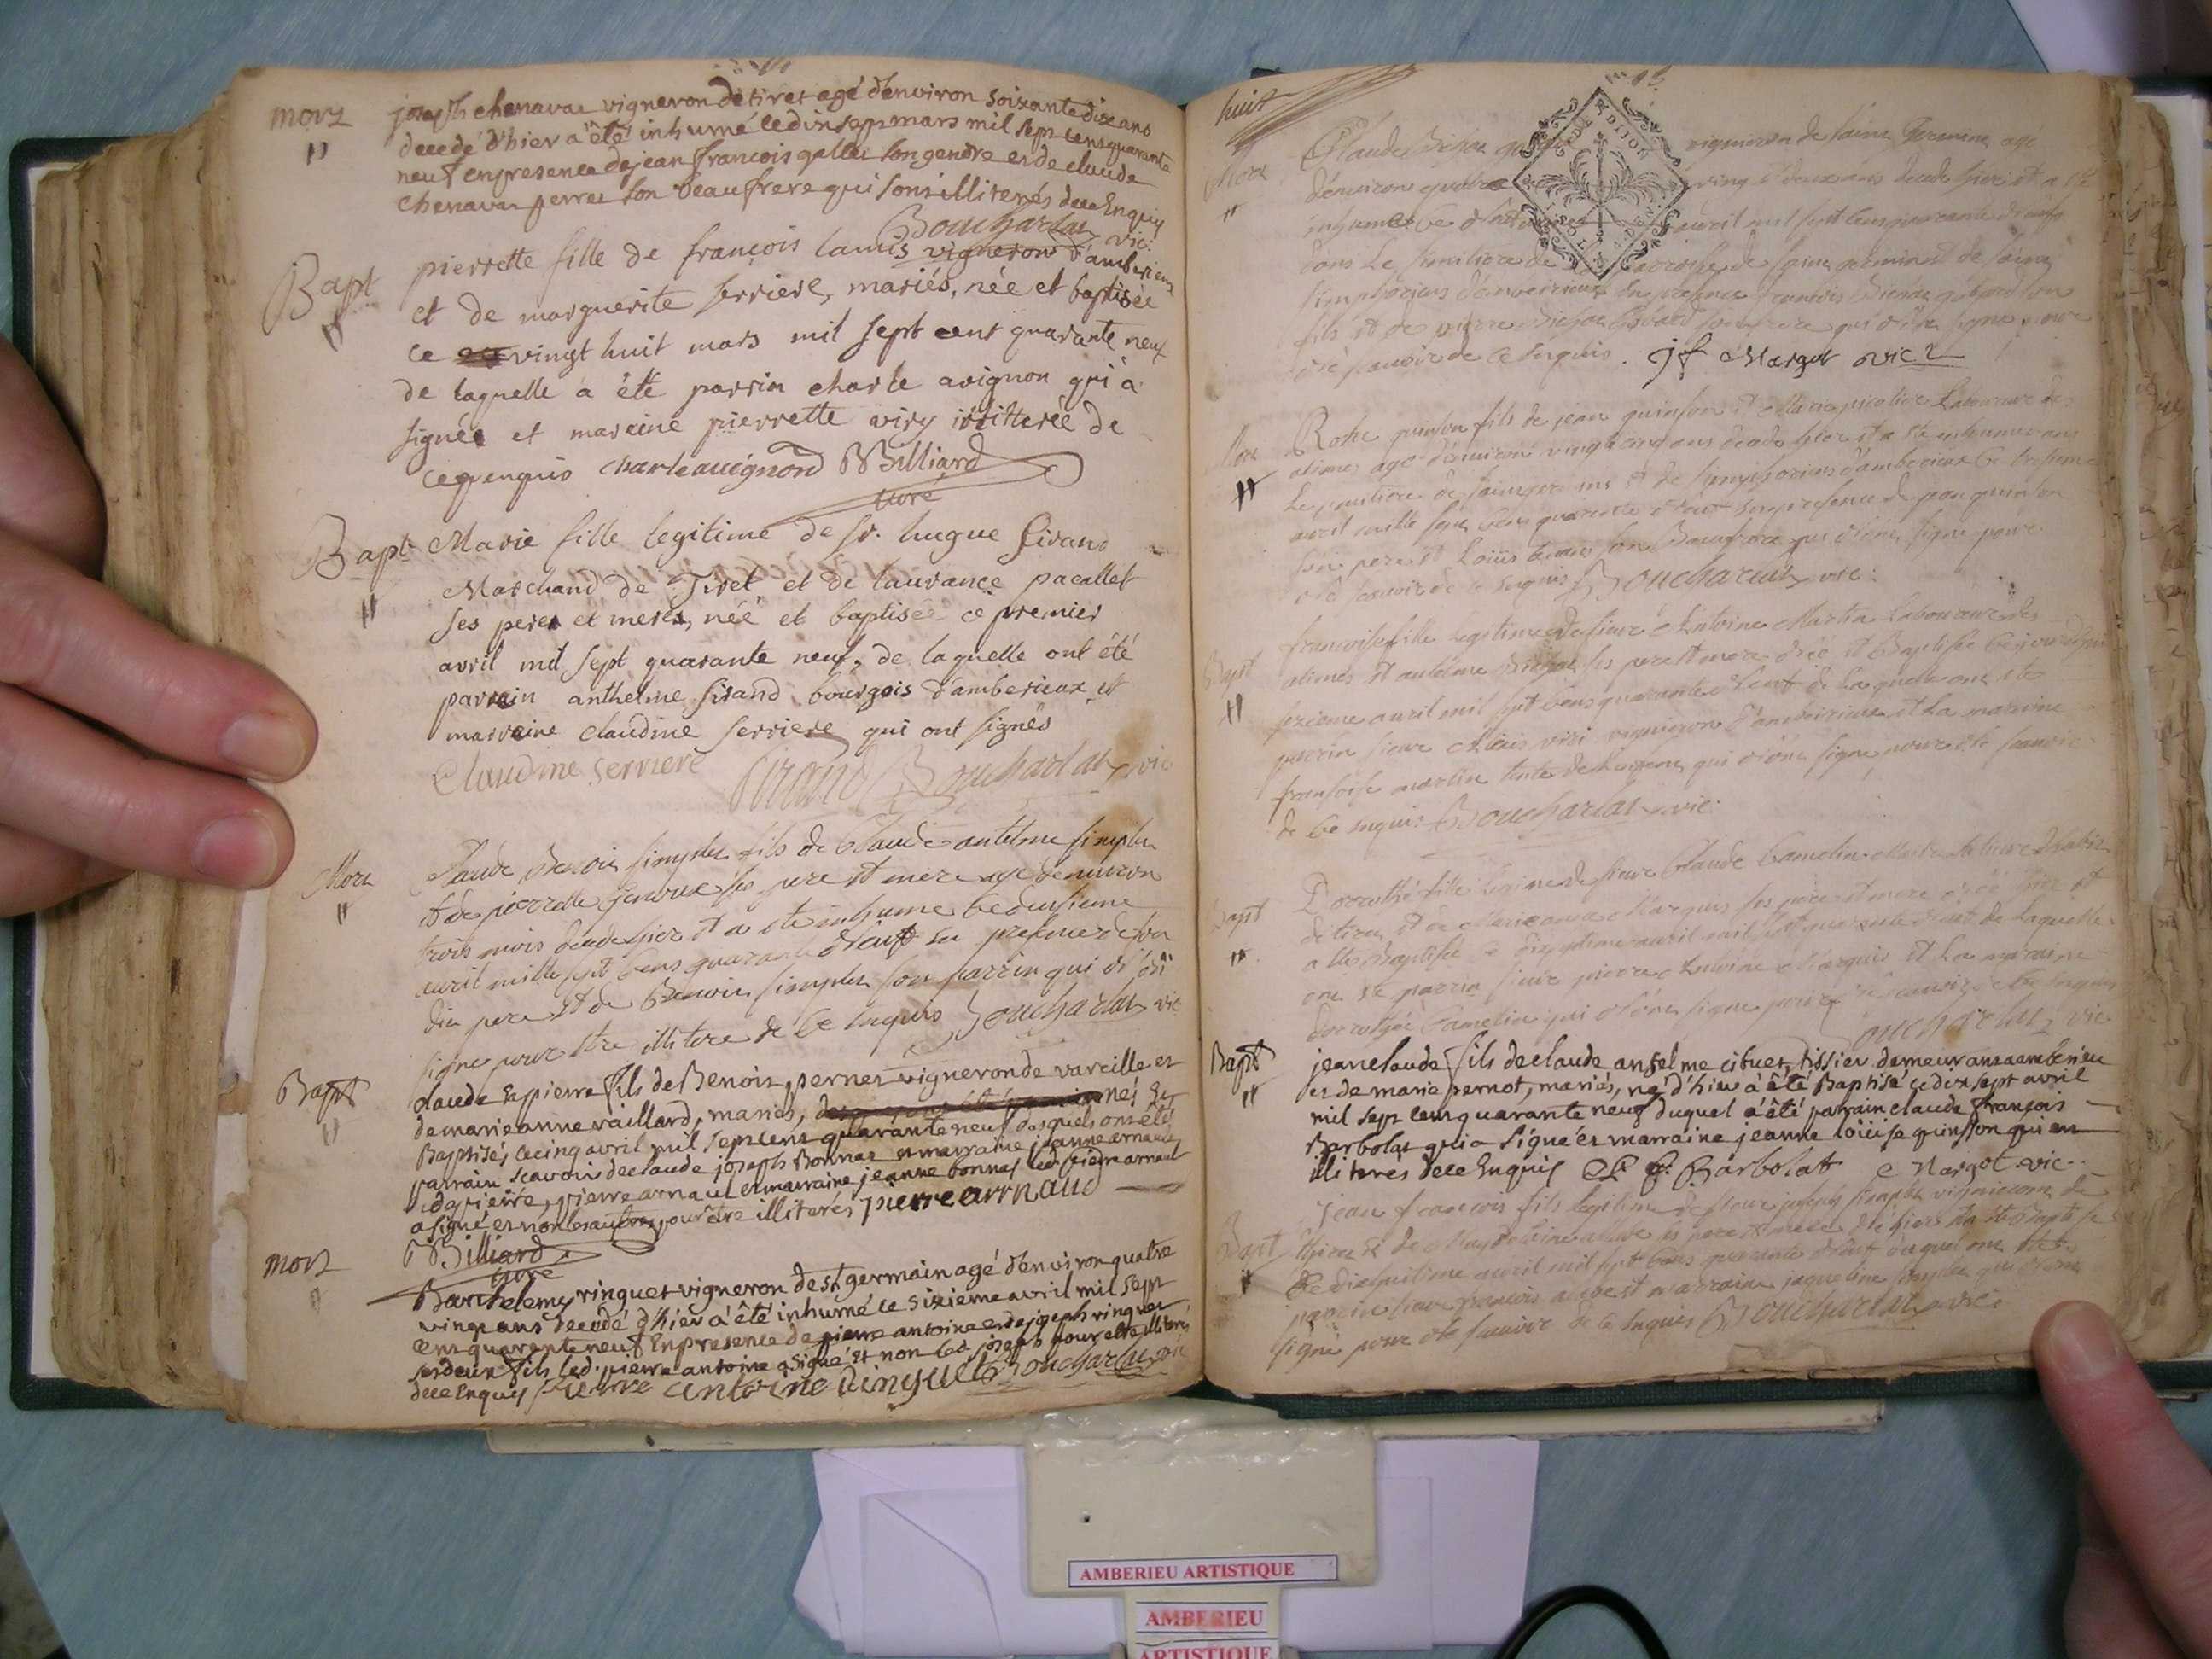 mort
joseph chenavaz vigneron de tiret agé d'environ soixante dix ans
decedé d'hier a été inhumé le dix sept mars mil sept cens quarante
neuf en presence de jean francois gallet son gendre et de claude
chenavaz perret son beaufrere qui sont illiterés de ce Enquis
Boucharlat vic:
Bapt
pierrette fille de françois lamis vigneron d'amberieux
et de marguerite serriere, mariés, née et baptisée
ce vingt huit mars mil sept cent quarante neuf
de laquelle a été parrin charle avignon qui a
signée et mareine pierrette viry illitterée de
ce enquis charle avignond Billiard
curé
Bapt
Marie fille legitime de sr. hugue sirand
Marchand de Tiret et de laurance pacallet
ses peres et meres, née et baptisée ce premier
avril mil sept quarante neuf, de laquelle ont été
parrein anthelme sirand bourgois d'amberieux et
marreine claudine serriere qui ont signés
Claudine serriere Sirand Boucharlat vic
Mort
Claude Benoit simplex fils de Claude antelme simplex
et de pierrette ses pere et mere age denuiron
trois mois decede hier et a ete inhume ce deusieme
auril mille sept Cens quarante Neuf en presence de son
dit pere et de Benoit simplex son parrin qui
signe pour etre illitere de Ce Enquis Boucharlat vic
Bapt
claude Et pierre fils de Benoit pernet vigneron de vareille et
de marie anne vaillard, mariés, nés Et
Baptisés ce cinq avril mil sept cens quarante neuf desquels ont été
parrain scavoir de claude joseph Bonnaz et marraine jeanne arnaud
et de pierre, pierre arnaud et marraine jeanne bonnaz led. pierre arnaud
a signé et non les autres pour être illiterés pierre arrnaud
Billiard
curé
mort
Barthelemy ringuet vigneron de st germain agé d'environ quatre
vingt ans decedé d'hier a été inhumé le sixieme avril mil sept
cens quarante neuf En presence de pierre antoine et de joseph ringuet
ses deux fils led. pierre antoine a signé et non led. joseph pour etre illiteré
de ce Enquis pierre antoine Ringuet Boucharlat vic
huit
Mort
Claude vigneron de saint Germain age
d'enuiron quatre vingt deux ans decede hier et a ete
inhume Ce auril mil sept Cens quarante Neuf
dans Le simitiere de La paroisse de saint germain et de saint
simphorien d'amberieux En presence francois
fils et de pierre qui n'ont signe pour
de ce Enquis. jf Margot vic
Mort
Roze quinson fils de jean quinson et Marie Laboureur des
alimes age d'enuiron vingt cinq ans decede hier et a ete inhume dans
Le simitiere de saint germains et de simphorien d'amberieux Ce treisieme
auril mille sept Cens quarante Neuf En presence de jean quinson
son pere et Loüis son Beaufrere qui n'ont signe pour
ne scavoir de ce Enquis Boucharlat vic:
Bapt
francoise fille Legitime de sieur Antoine Martin Laboureur des
alimes et antelme ses pere et mere Née et Baptisée Ce jourdhui
seizieme auril mil sept Cens quarante Neuf de Laquelle ont ete
parrin sieur viri vigneron d'amberieux et La marraine
fransoise qui n'ont signe pour ne scauoir
de Ce Enquis Boucharlat vic:
Bapt
Dorothé fille Legitime de sieur Claude Camelin
de tiret et de Marie anne Marquis ses pere et mere Née hier et
a ete Baptisée ce dixseptieme auril mil sept quarante Neuf de Laquelle
ont ete parrin sieur pierre Antoine Marquis et La marraine
Dorothée Camelin qui n'ont signe pour ne scauoir de Ce Enquis
Boucharlat vic
Bapt
jean claude fils de claude anselme cituet, tissier demeurant a amberieu
et de marie pernot, mariés, né d'hier a été Baptisé ce dix sept avril
mil sept cens quarante neuf duquel a été parrain claude françois
Barbolat qui a signé et marraine jeanne loüise quinsson qui est
illiterés de ce Enquis C f Barbolatt Margot vic.
Bapt
jean francois fils legitime de sieur joseph simplex vigneron de
tiret et de Magdelaine ses pere et mere Né hier et a ete Baptisé
Ce dixhuitieme auril mil sept Cens quarante Neuf duquel ont ete
parrin sieur francois et marraine jaqueline simplex qui n'ont
signé pour ne scauoir de Ce Enquis Boucharlat vic:
AMBERIEU ARTISTIQUE
AMBERIEU
ARTISTIQUE